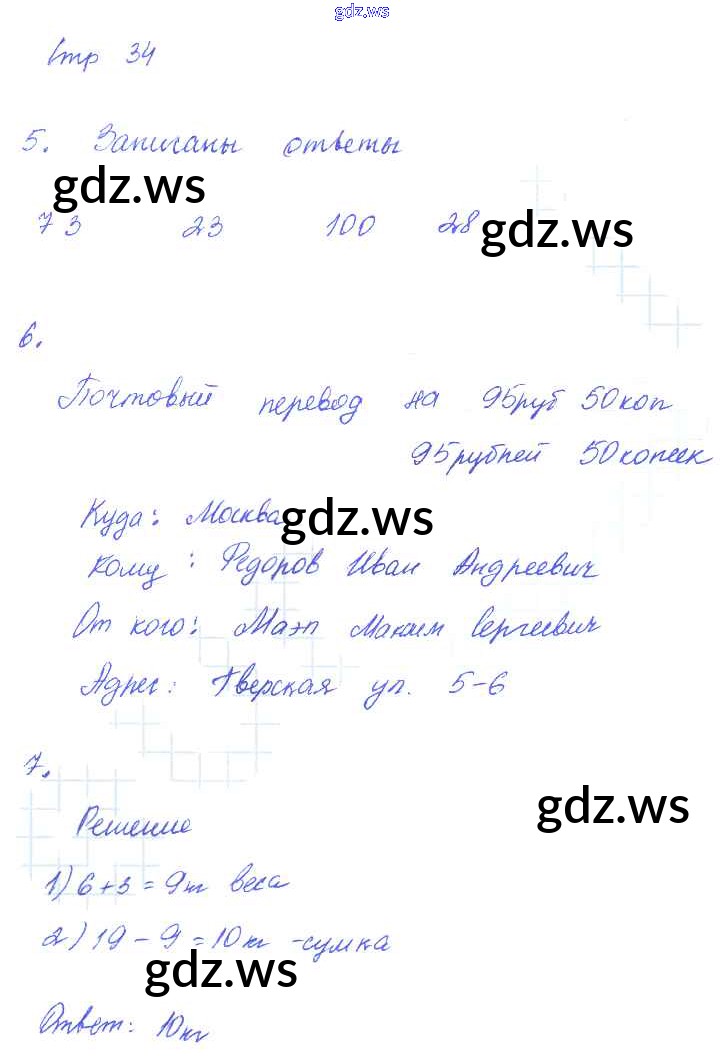 gdz.ws
стр 34
5. Записаны ответы
gdz.ws
73 23 100 28 gdz.ws
6.
Почтовый перевод на 95руб 50коп
95рублей 50копеек
Куда: Москва gdz.ws
Кому: Федоров Иван Андреевич
От кого: Маэп Максим Сергеевич
Адрес: Тверская ул. 5-6
7.
Решение gdz.ws
1) 6+3=9кг веса
2) 19-9=10кг -сумка
gdz.ws
Ответ: 10кг